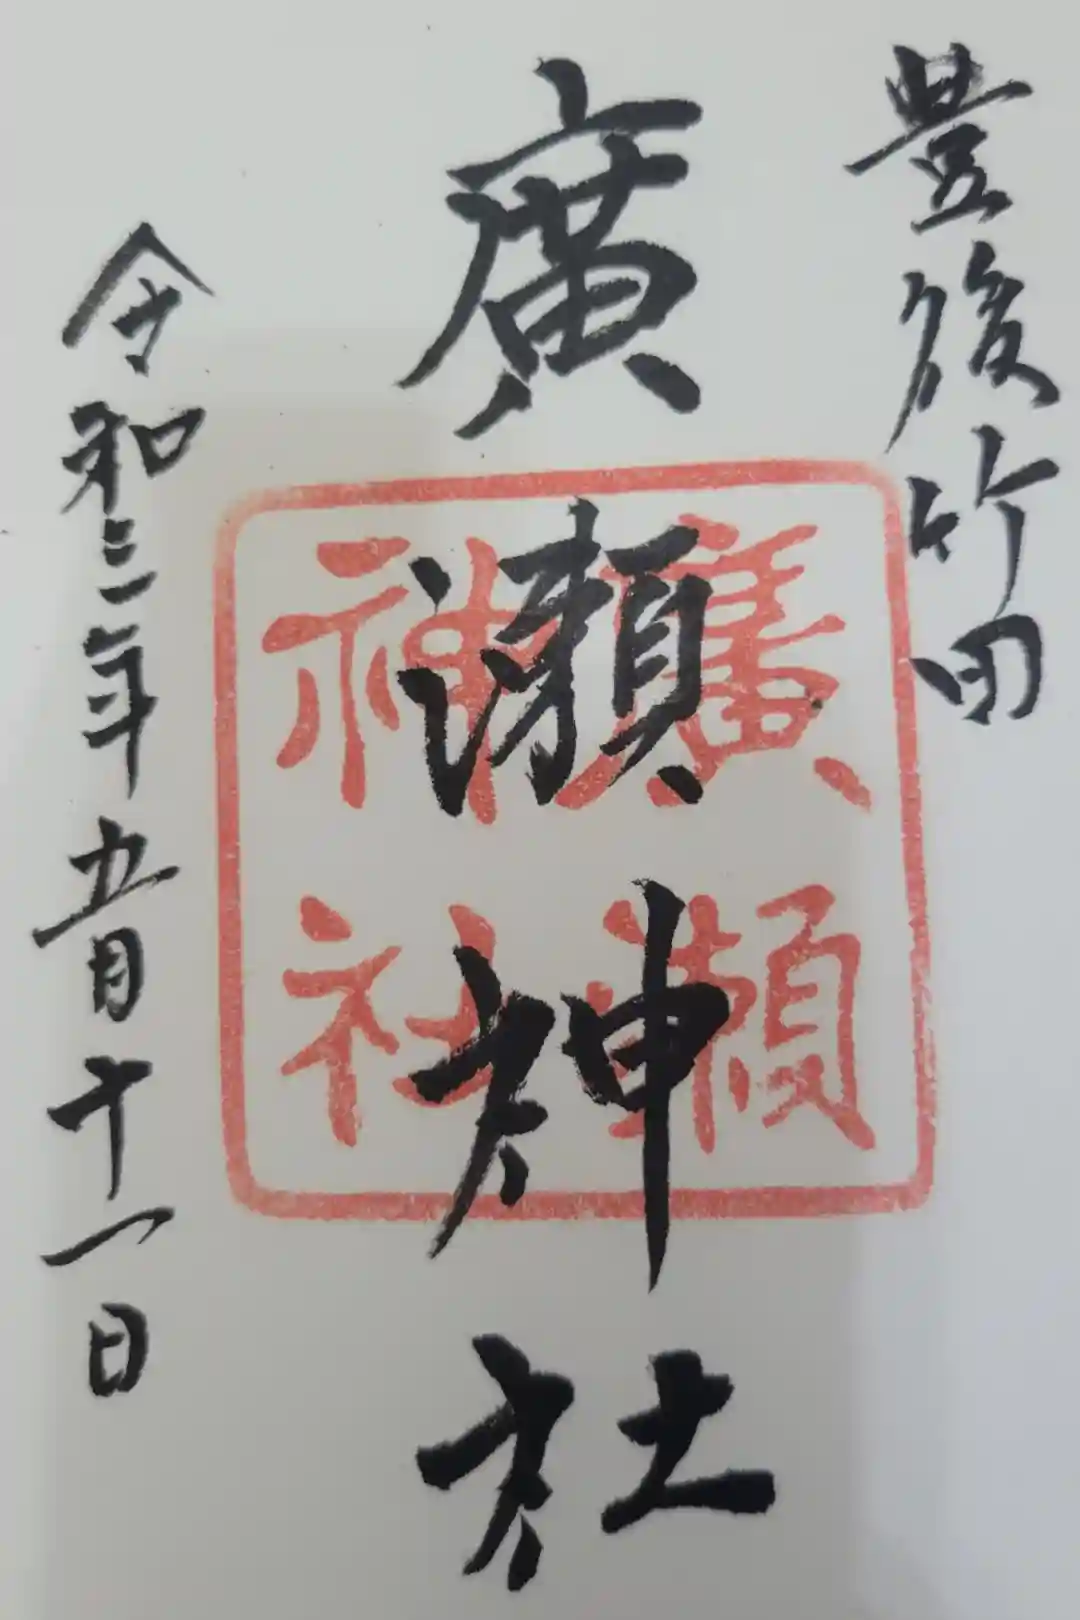 豊後竹田
廣瀬神社
廣瀬
神社
令和三年五月十一日